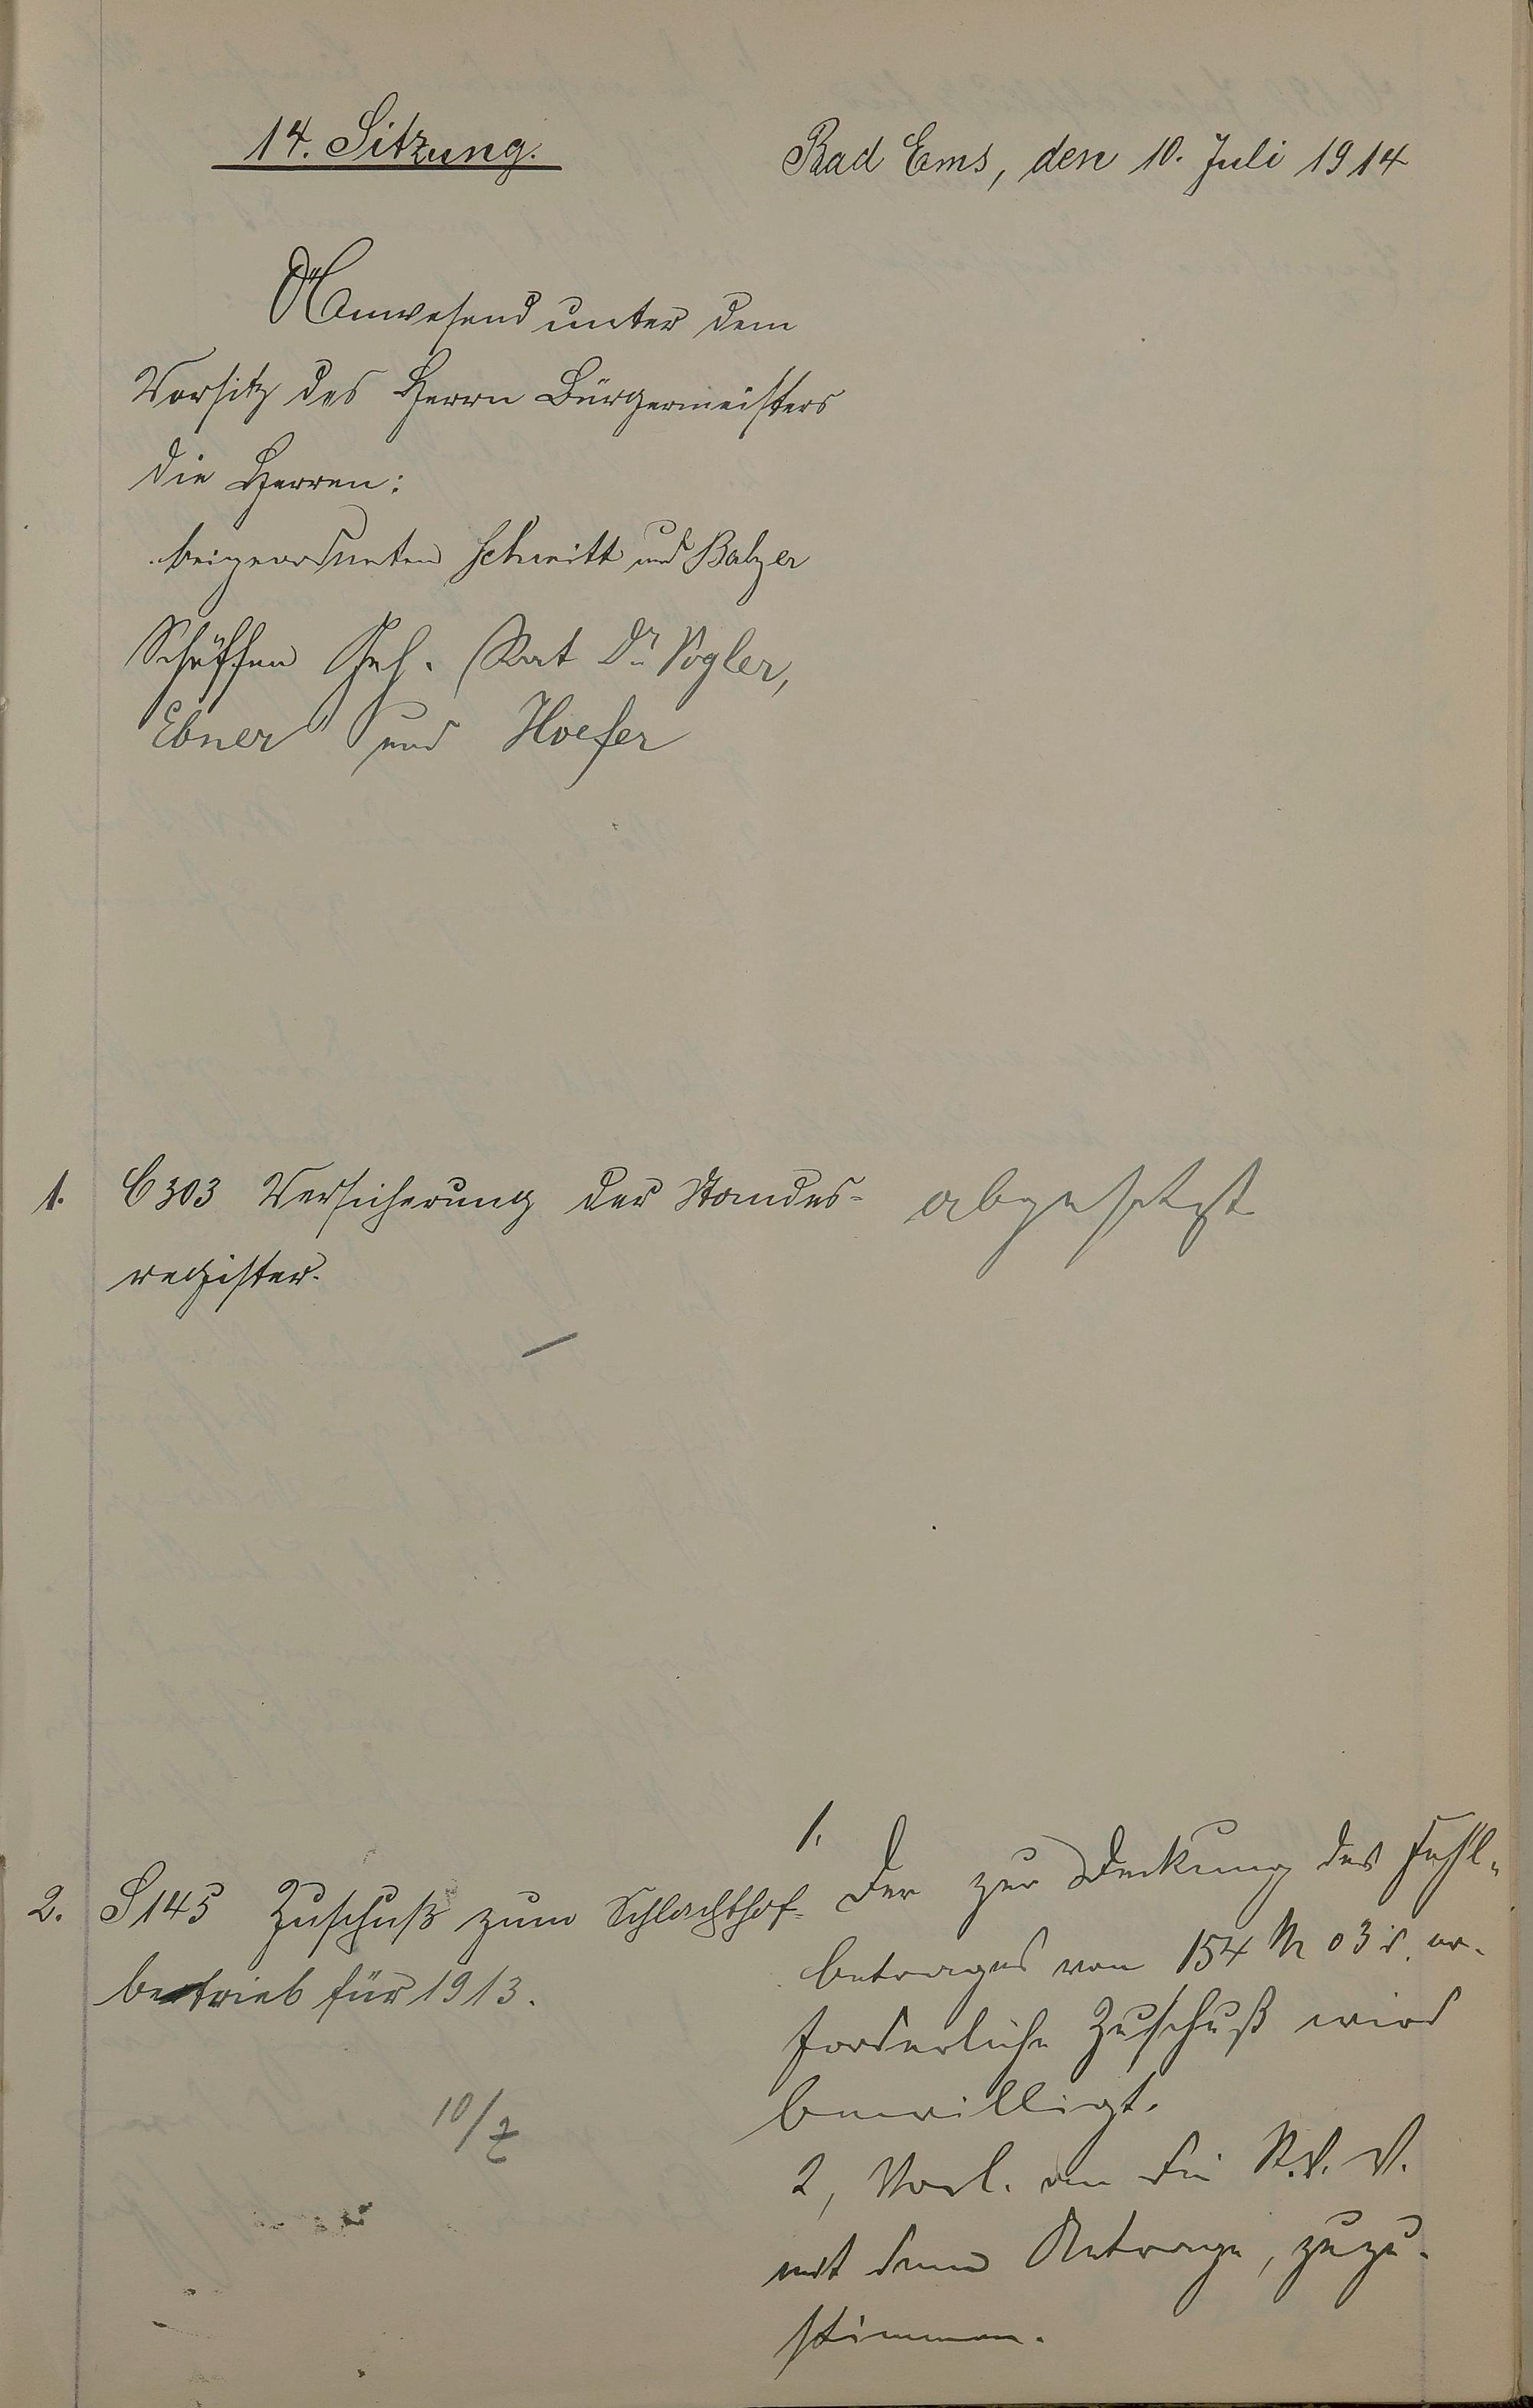 14. Sitzung.
Bad Ems, den 10. Juli 1914
Anwesend unter dem
Vorsitz des Herrn Bürgermeisters
die Herren:
beigeordneten Schmitt und Balzer
Schöffen Geh. Rat Dr. Vogler,
Ebner und Hoefer
1. C 303 Versicherung der Standes-
register.
abgesetzt
2. S 145 Zuschuß zum Schlachthof-
betrieb für 1913.
10/7
1.
Der zur Deckung des Fehl-
betrages von 154 M 03 er-
forderliche Zuschuß wird
bewilligt.
2, Vorl. an die St. V. V.
mit dem Antrage, zuzu-
stimmen.